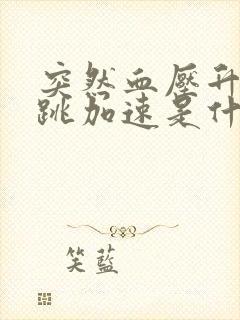 突然血壓升
跳加速是什
笑藍